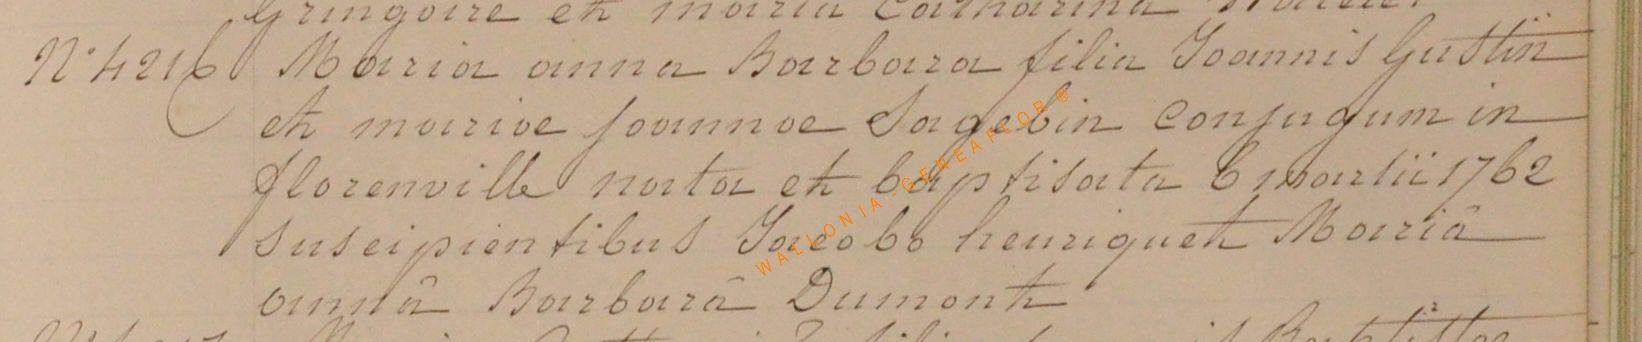 Gringoire et maria Catharina
N° 4216 Maria anna Barbara filia Joannis Gustin
et mariae joannae Sagebin conjugum in
florenville nata et baptisata 6 martii 1762
suscipientibus Jacobo henriquet Mariâ
annâ Barbarâ Dumont
WALLONIA-GENEAFLOR®